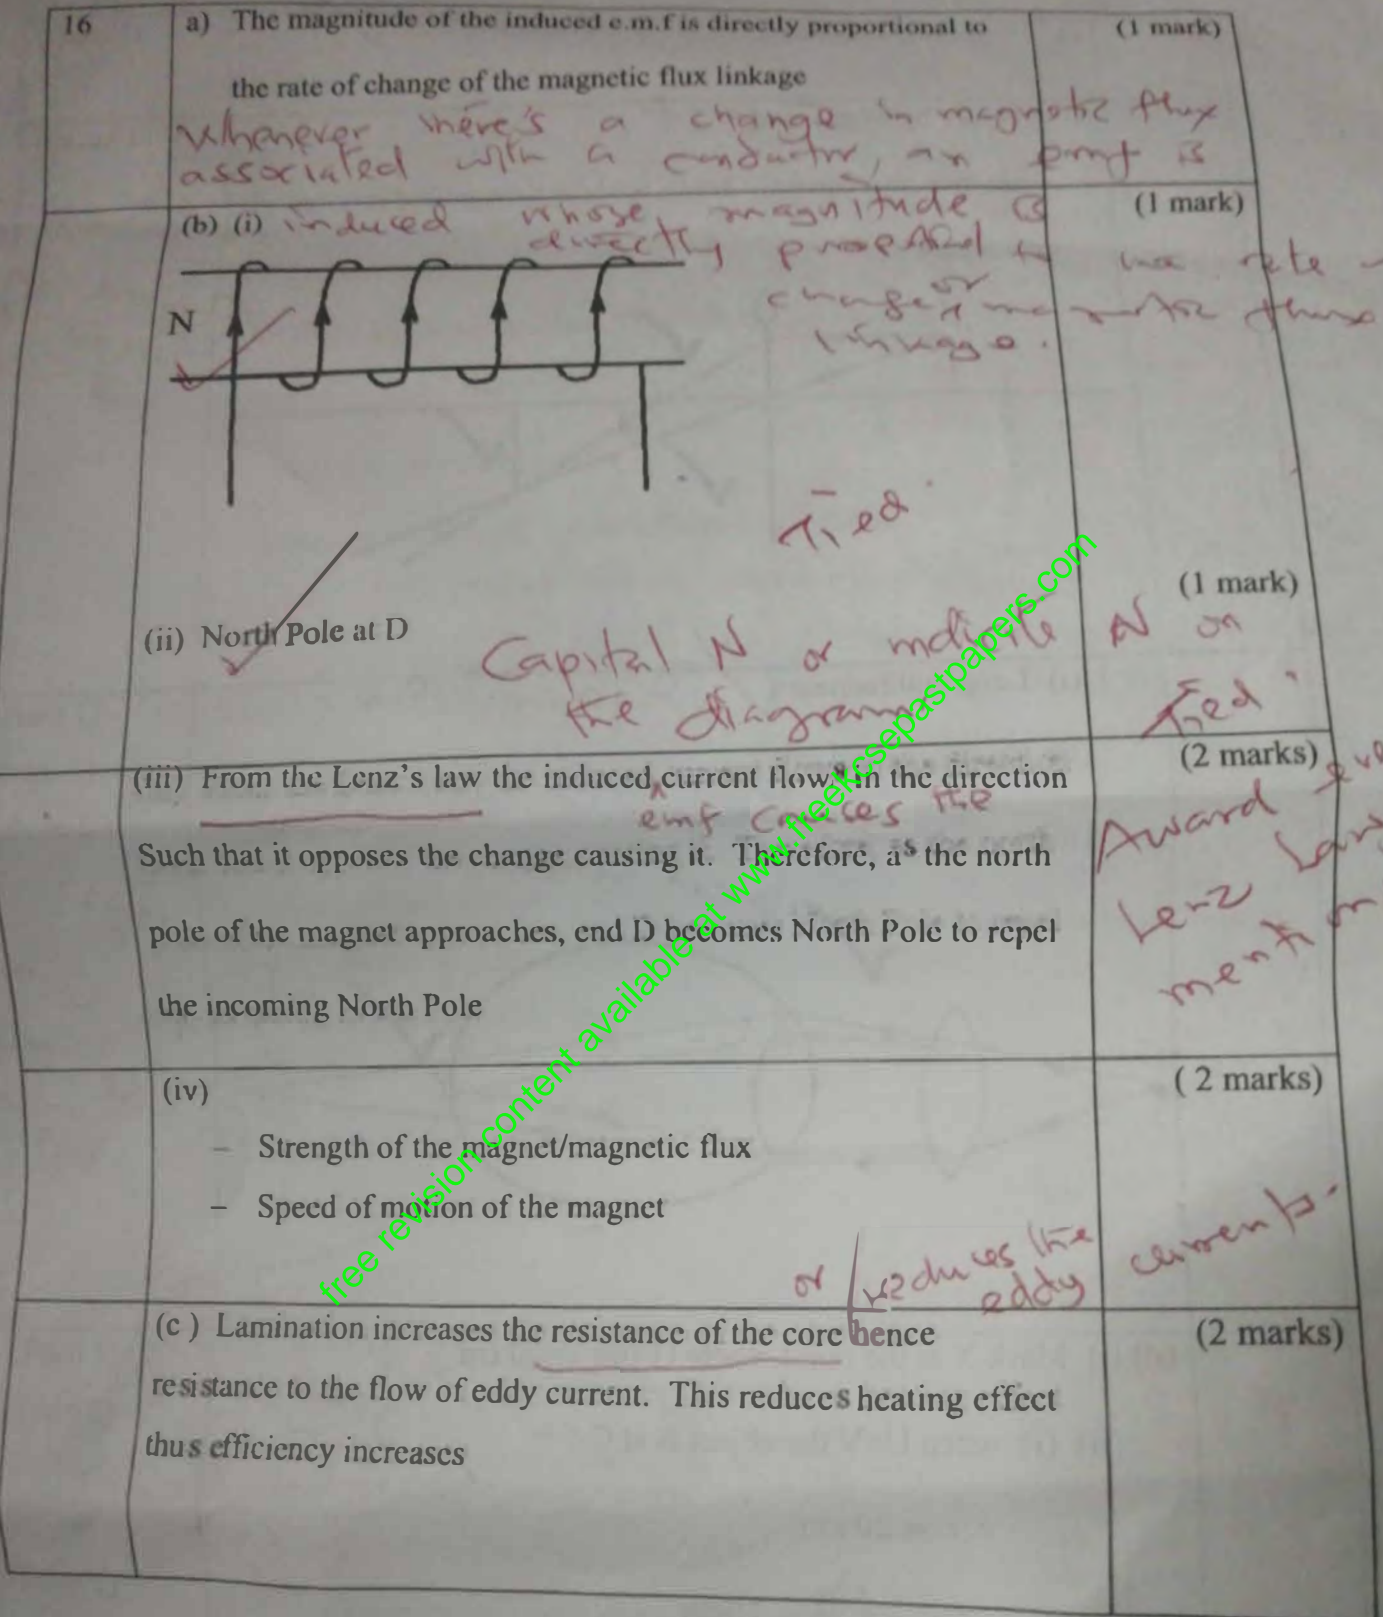 16 a) The magnitude of the induced e.m.f is directly proportional to (1 mark)
the rate of change of the magnetic flux linkage
Whenever there's a change in magnetic flux
associated with a conductor, an emf is
(b) (i) induced whose magnitude is (1 mark)
directly to rate
change of magnetic flux
linkage.
N
Tied
(1 mark)
(ii) North Pole at D
Capital N or indicate N on
the diagram
Tied
(iii) From the Lenz's law the induced current flows in the direction (2 marks)
emf causes the
Such that it opposes the change causing it. Therefore, as the north
pole of the magnet approaches, end D becomes North Pole to repel
the incoming North Pole
Award
Lenz Law
mention
(iv) ( 2 marks)
– Strength of the magnet/magnetic flux
– Speed of motion of the magnet
or reduces the
eddy currents.
(c ) Lamination increases the resistance of the core hence (2 marks)
resistance to the flow of eddy current. This reduces heating effect
thus efficiency increases
free revision content available at www.freekcsepastpapers.com